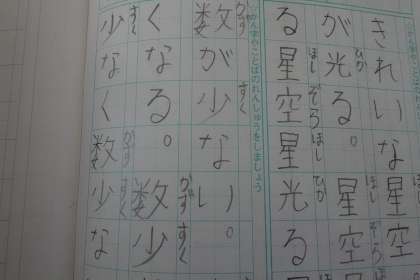 きれいな星空
ひか ほし ぞら
が光る。星空
ほし ぞら ほし ひか
る星空星光る
かんじのことばのれんしゅうをしましょう
かず すく
数が少ない。
かず すく
くなる。数少
すく かず すく
少なく数少な